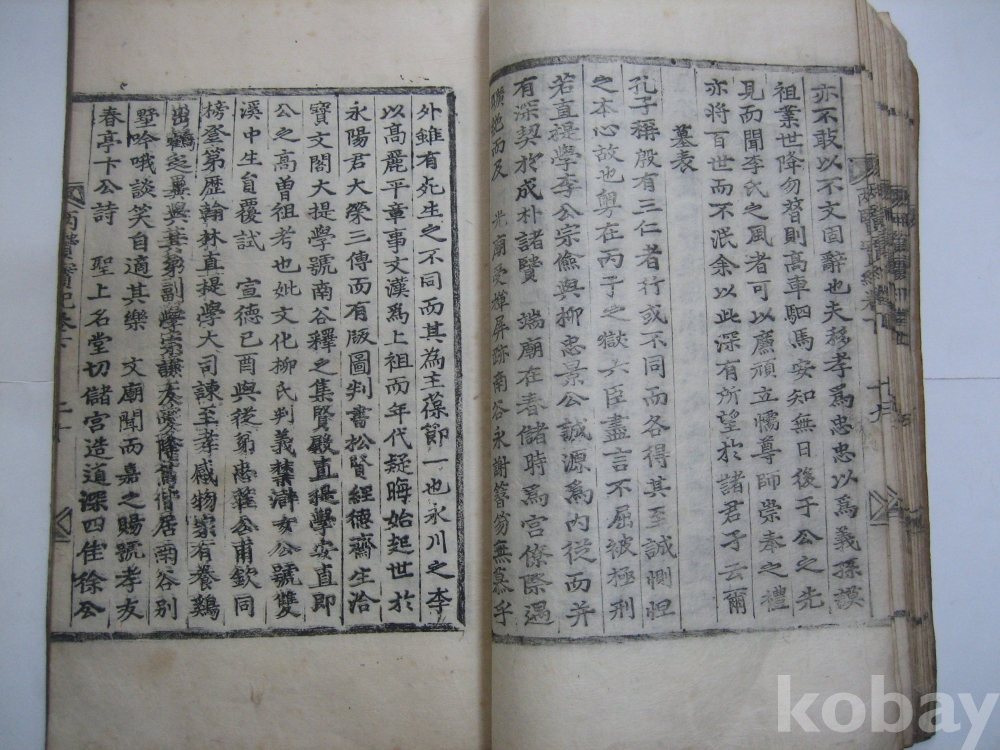 亦不敢以不文固辭也夫移孝爲忠忠以爲義孫謨
祖業世降勿替則高車駟馬安知無日後于公之先
見而聞李氏之風者可以廉頑立懦尊師崇奉之禮
亦將百世而不泯余以此深有所望於諸君子云爾
墓表
孔子稱殷有三仁者行或不同而各得其至誠惻怛
之本心故也粤在丙子之獄六臣盡言不屈被極刑
若直提學李公宗儉與柳忠景公誠源爲內從而并
有深契於成朴諸賢 端廟在春儲時爲宮僚際遇
而及 光廟受禪屛跡南谷永謝簪笏無慕乎
外雖有死生之不同而其為主葆節一也永川之李
以高麗平章事文漢爲上祖而年代疑晦始起世於
永陽君大榮三傳而有版圖判書松賢經德齋生洽
寶文閣大提學號南谷釋之集賢殿直提學安直即
公之高曾祖考也妣文化柳氏判義禁滸女公號雙
溪中生員覆試 宣德己酉與後弟忠 公甫欽同
榜登第歷翰林直提學大司諫至孝感物家有養鷄
出鶴之異與其弟副學 居南谷別
墅吟哦談笑自適其樂 文廟聞而嘉之賜號孝友
春亭卞公詩 聖上名堂切儲宮造道深四佳徐公
十九
二十
kobay